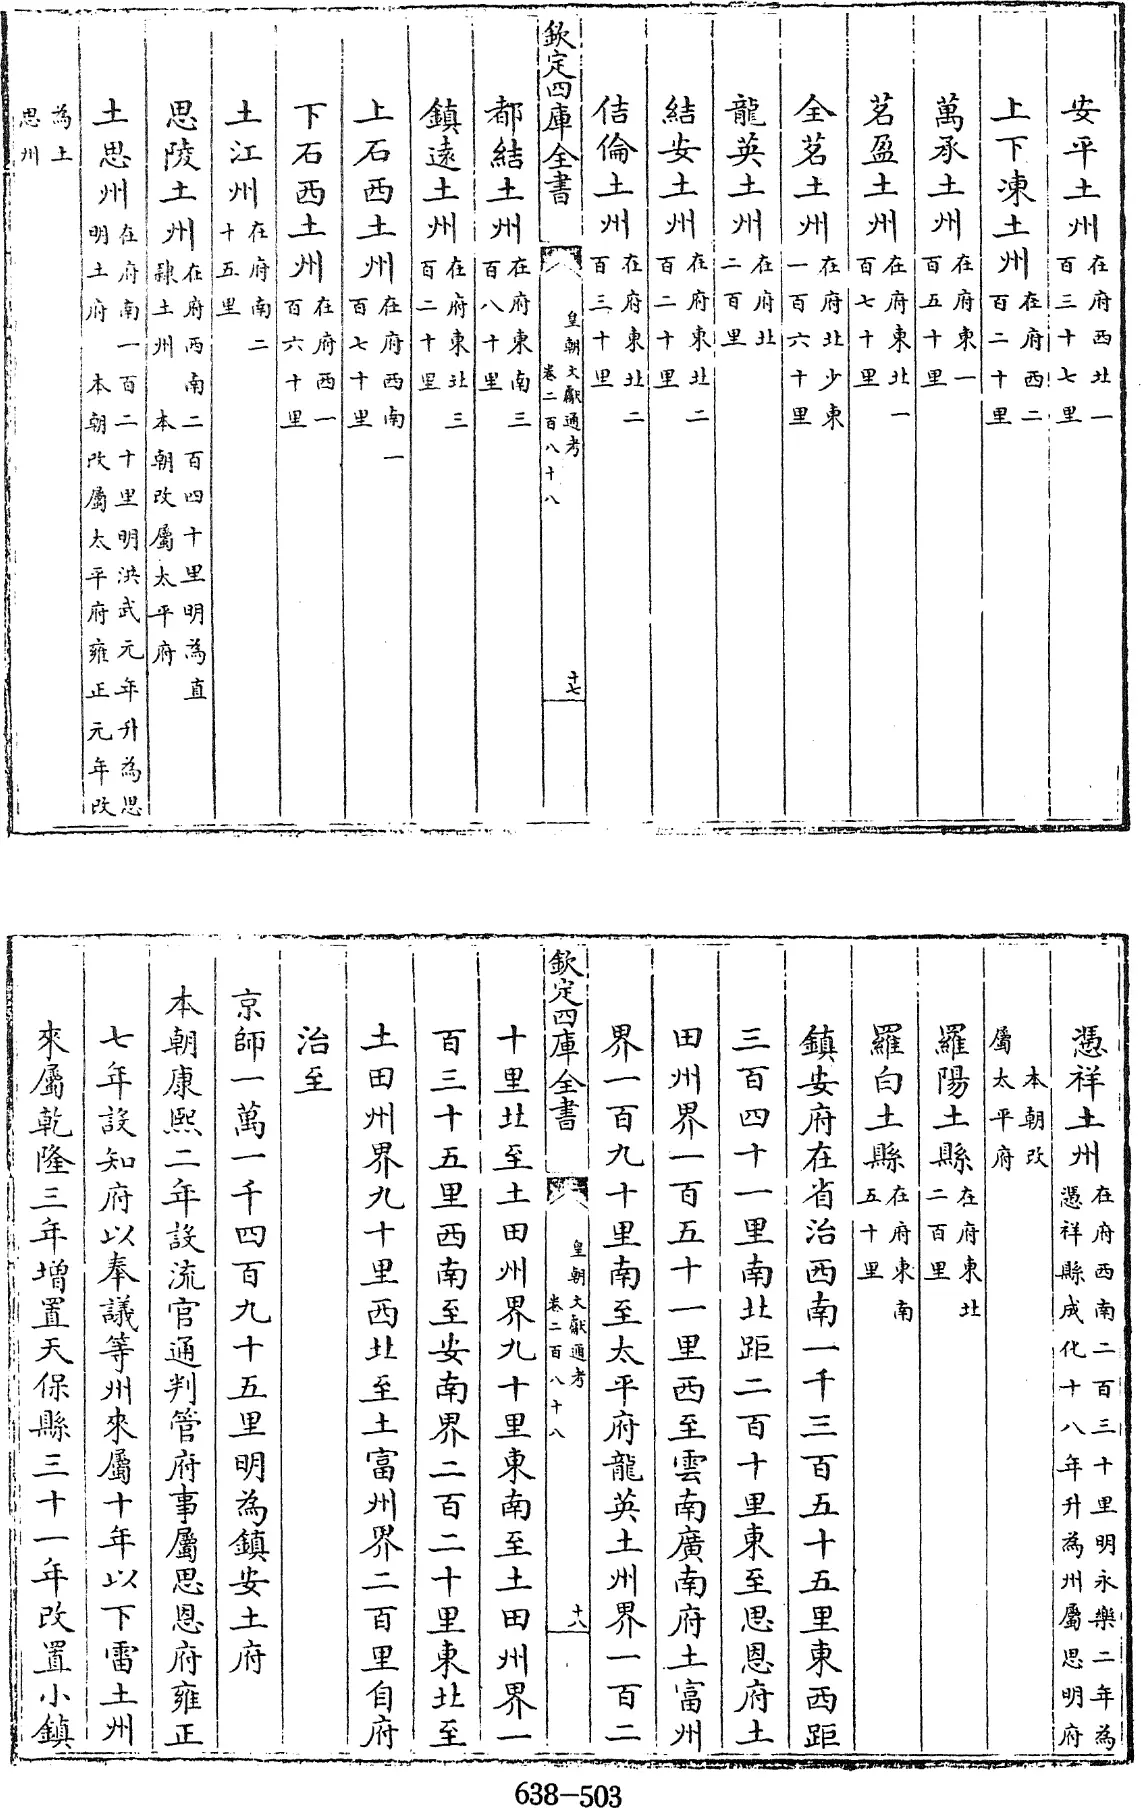 安平土州在府西北一百三十七里
上下凍土州在府西二百二十里
萬承土州在府東一百五十里
茗盈土州在府東北一百七十里
全茗土州在府北少東一百六十里
龍英土州在府北二百里
結安土州在府東北二百二十里
佶倫土州在府東北二百三十里
欽定四庫全書
皇朝文獻通考
卷二百八十八
十七
都結土州在府東南三百八十里
鎮遠土州在府東北三百二十里
上石西土州在府西南一百七十里
下石西土州在府西一百六十里
土江州在府南二十五里
思陵土州在府西南二百四十里明為直隸土州 本朝改屬太平府
土思州在府南一百二十里明洪武元年升為思明土府 本朝改屬太平府雍正元年改
為土思州
憑祥土州在府西南二百三十里明永樂二年為憑祥縣成化十八年升為州屬思明府
本朝改屬太平府
羅陽土縣在府東北二百里
羅白土縣在府東南五十里
鎮安府在省治西南一千三百五十五里東西距
三百四十一里南北距二百十里東至思恩府土
田州界一百五十一里西至雲南廣南府土富州
界一百九十里南至太平府龍英土州界一百二
欽定四庫全書
皇朝文獻通考
卷二百八十八
十八
十里北至土田州界九十里東南至土田州界一
百三十五里西南至安南界二百二十里東北至
土田州界九十里西北至土富州界二百里自府
治至
京師一萬一千四百九十五里明為鎮安土府
本朝康熙二年設流官通判管府事屬思恩府雍正
七年設知府以奉議等州來屬十年以下雷土州
來屬乾隆三年增置天保縣三十一年改置小鎮
638-503